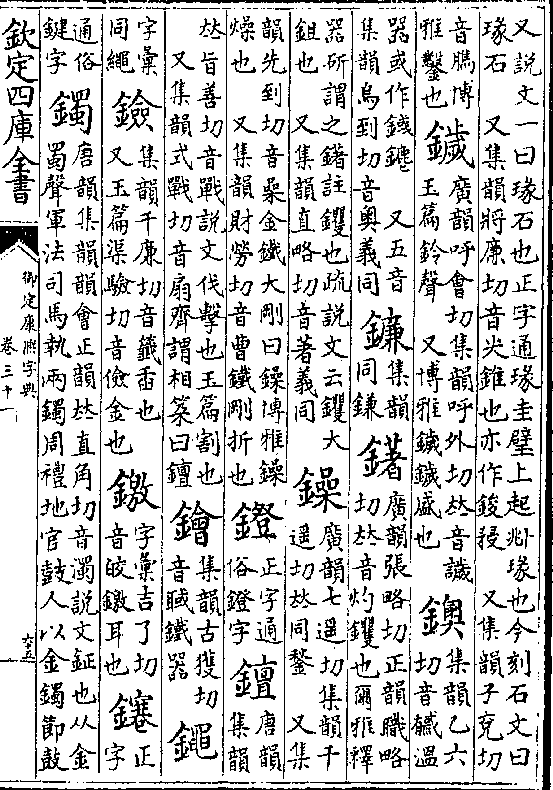 又說文一曰瑑石也正字通瑑圭璧上起兆瑑也今刻石文曰
瑑石 又集韻將廉切音尖錐也亦作鋟 又集韻子兗切
音臇博
雅鑿也
鐬
廣韻呼會切集韻呼外切𠀤音譓
玉篇鈴聲 又博雅鐬鐬盛也
鐭
集韻乙六
切音 溫
器或作 又五音
集韻烏到切音奧義同
鐮
集韻
同鎌
鐯
廣韻張略切正韻職略
切𠀤音灼钁也爾雅釋
器斫謂之鐯註钁也疏說文云钁大
鉏也 又集韻直略切音著義同
鐰
廣韻七遥切集韻千
遥切𠀤同 又集
韻先到切音喿金鐵大剛曰鐰博雅鐰
燥也 又集韻財勞切音曹鐵剛折也
正字通
俗鐙字
唐韻
集韻
𠀤旨善切音戰說文伐擊也玉篇割也
又集韻式戰切音扇齊謂相 曰
集韻古獲切
音聝鐵器
字彙
同繩
鐱
集韻千廉切音籤臿也
又玉篇渠驗切音儉金也
字彙吉了切
音皎 耳也
正
字
通俗
鍵字
鐲
唐韻集韻韻會正韻𠀤直角切音濁說文鉦也从金
蜀聲軍法司馬執兩鐲周禮地官鼓人以金鐲節鼓
欽定四庫全書
御定康熙字典
卷三十一
六十五